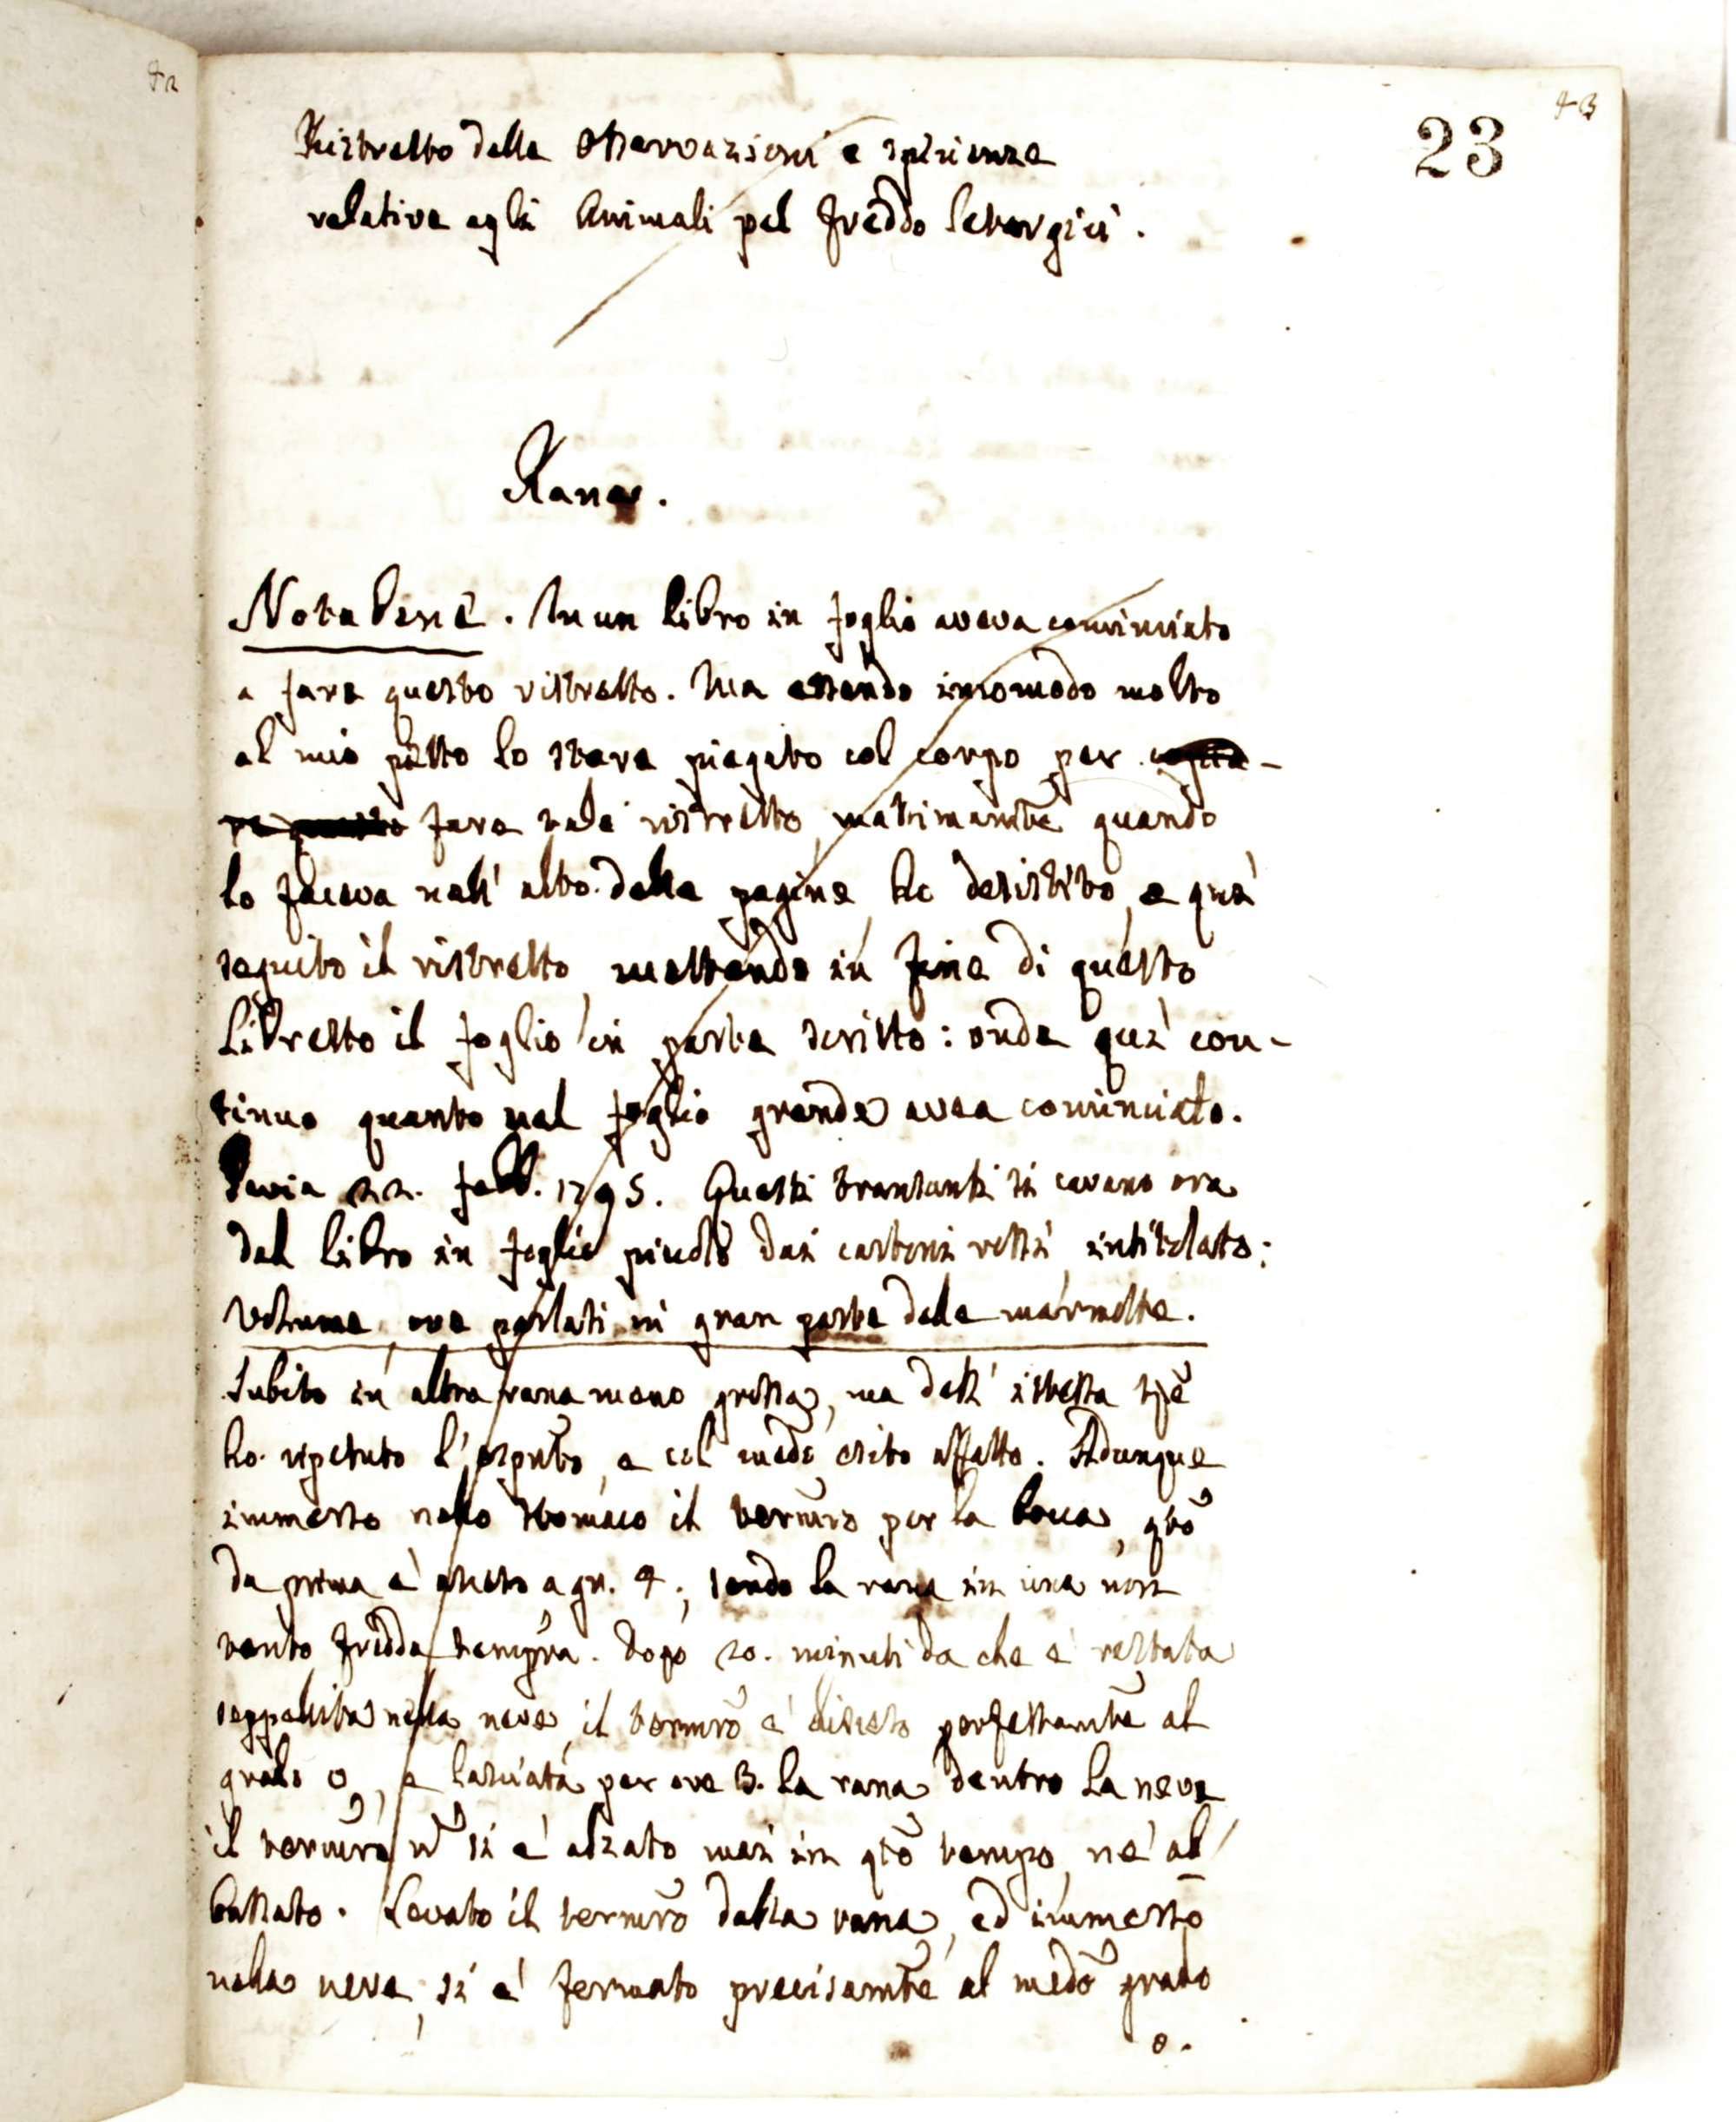 42
43
23
Ristretto delle osservazioni e sperienze
relative agli Animali pel freddo letargici.
Rane.
Nota bene. In un libro in foglio aveva cominciato
a fare questo ristretto. Ma essendo incomodo molto
al mio petto lo stare piegato col corpo per copia-
re questo fare tale ristretto, massimamte quando
lo faceva nell' alto delle pagine, ho desistito, e quì
seguito il ristretto, mettendo in fine di questo
libretto il foglio in parte scritto: onde quì con-
tinuo quanto nel foglio grande avea cominciato.
Pavia 22. febb. 1795. Questi transunti si cavano ora
dal libro in foglio piccolo dai cartoni rossi, intitolato:
Volume, ove parlasi in gran parte delle marmotte.
Subito in altra rana meno grossa, ma dell' istessa spe
ho ripetuto l'esprmto, e col medo esito affatto. Adunque
immerso nello stomaco il termro per la bocca, qto
da prima è asceso a gr. 4., sendo la rana in una non
tanto fredda tempra. Dopo 20. minuti da che è restata
seppellita nella neve, il termro è disceso perfettamte al
grado 0, e lasciata per ore 3. la rana dentro la neve
il termro n si è alzato mai in qto tempo, nè ab
bassato. Levato il termro dalla rana, ed immerso
nella neve, si è fermato precisamte al medo grado
0.